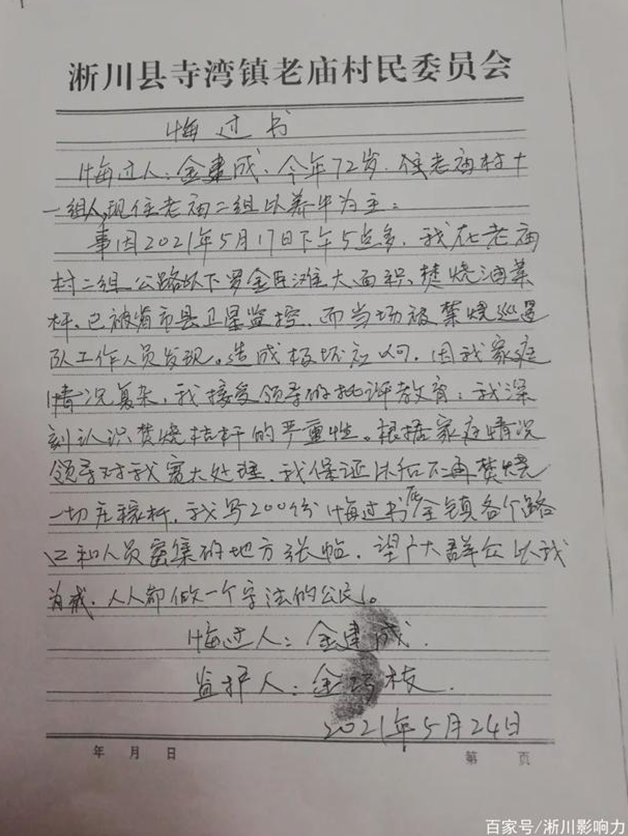 淅川县寺湾镇老庙村民委员会
悔过书
悔过人:金建成,今年72岁.住老庙村十
一组人,现住老庙二组以养牛为主。
事因2021年5月17日下午5点多,我在老庙
村二组公路以下罗金臣滩大面积,焚烧油菜
杆,已被省市县卫星监控,而当场被禁烧巡逻
队工作人员发现。造成极坏影向,因我家庭
情况复杂,我接受领导的批评教育;我深
刻认识焚烧桔杆的严重性。根据家庭情况
领导对我宽大处理,我保证从后不再焚烧
一切庄稼杆,我写200份悔过书在全镇各个路
口和人员密集的地方张帖,望广大群众以我
为戒,人人都做一个守法的公民。
悔过人:金建成.
监护人:金 枝.
2021年5月24日
年 月 日 第 页
百家号/淅川影响力